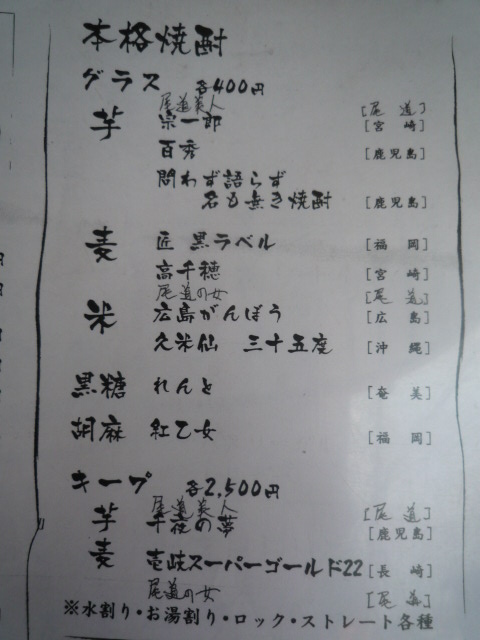 本格焼酎
グラス 各400円
尾道美人 [尾道]
芋 宗一郎 [宮崎]
百秀 [鹿児島]
問わず語らず
名も無き焼酎 [鹿児島]
麦 匠 黒ラベル [福岡]
高千穂 [宮崎]
尾道の女 [尾道]
米 広島がんぼう [広島]
久米仙 三十五度 [沖縄]
黒糖 れんと [奄美]
胡麻 紅乙女 [福岡]
キープ 各2,500円
尾道美人 [尾道]
芋 千夜の夢 [鹿児島]
麦 壱岐スーパーゴールド22 [長崎]
尾道の女 [尾道]
※水割り・お湯割り・ロック・ストレート各種